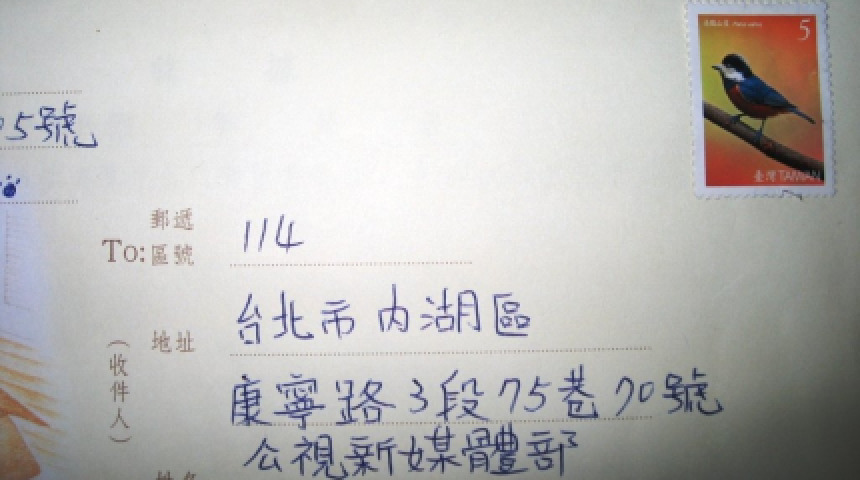 5
臺灣 TAIWAN
05號
郵遞
To: 區號
114
台北市內湖區
地址
(收件人)
康寧路3段75巷70號
公視新媒體部
姓名